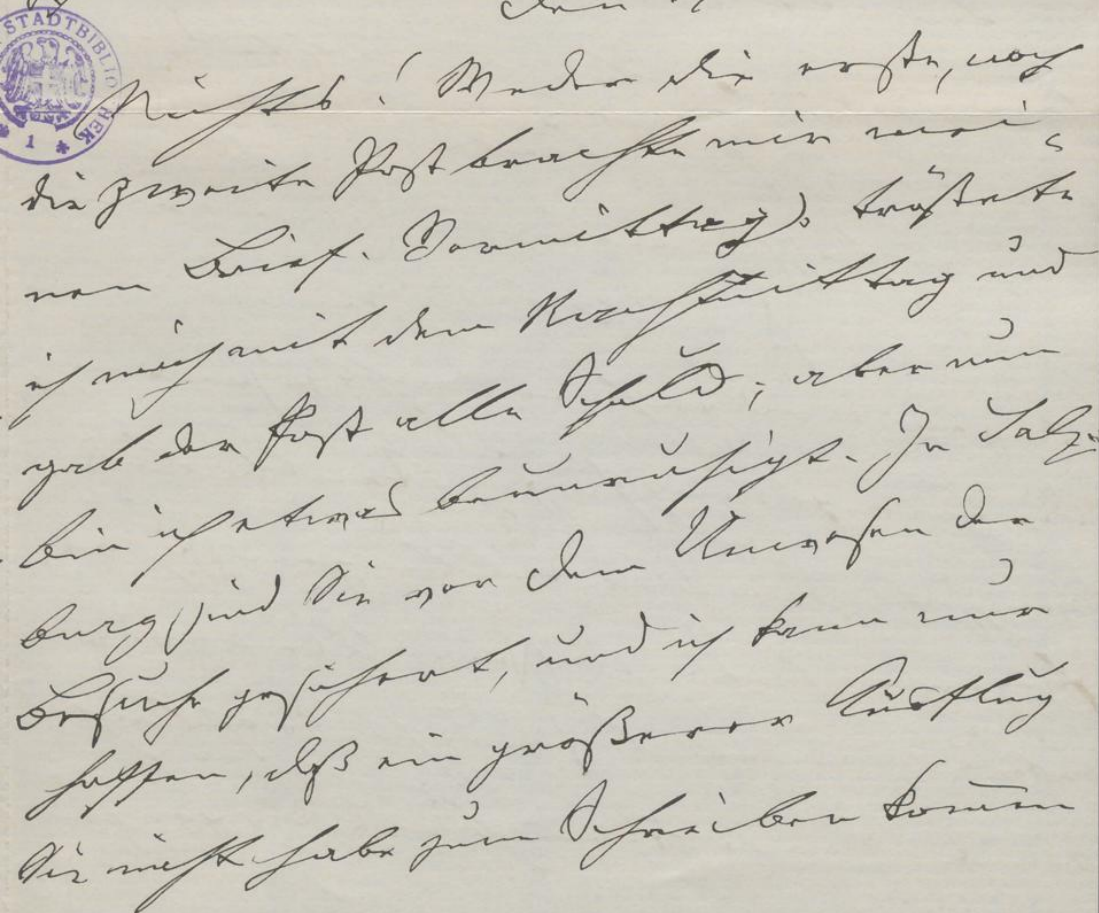 STADTBIBLIOTHEK
1
Nichts! Weder die erste, noch
die zweite Post brachte mir mei-
nen Brief. Vormittags tröstete
ich mich mit dem Nachmittag und
gab der Post alle Schuld; aber nun
bin ich etwas beunruhigt. In Salz-
burg sind Sie vor dem Unwesen der
Besuche gesichert, und ich kann nur
hoffen, daß ein größerer Ausflug
Sie nicht habe zum Schreiben kommen